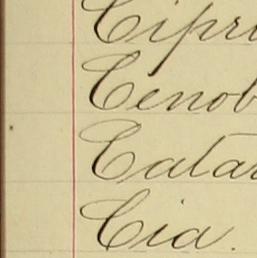 Cipri
Cenob
Catar
Cia.